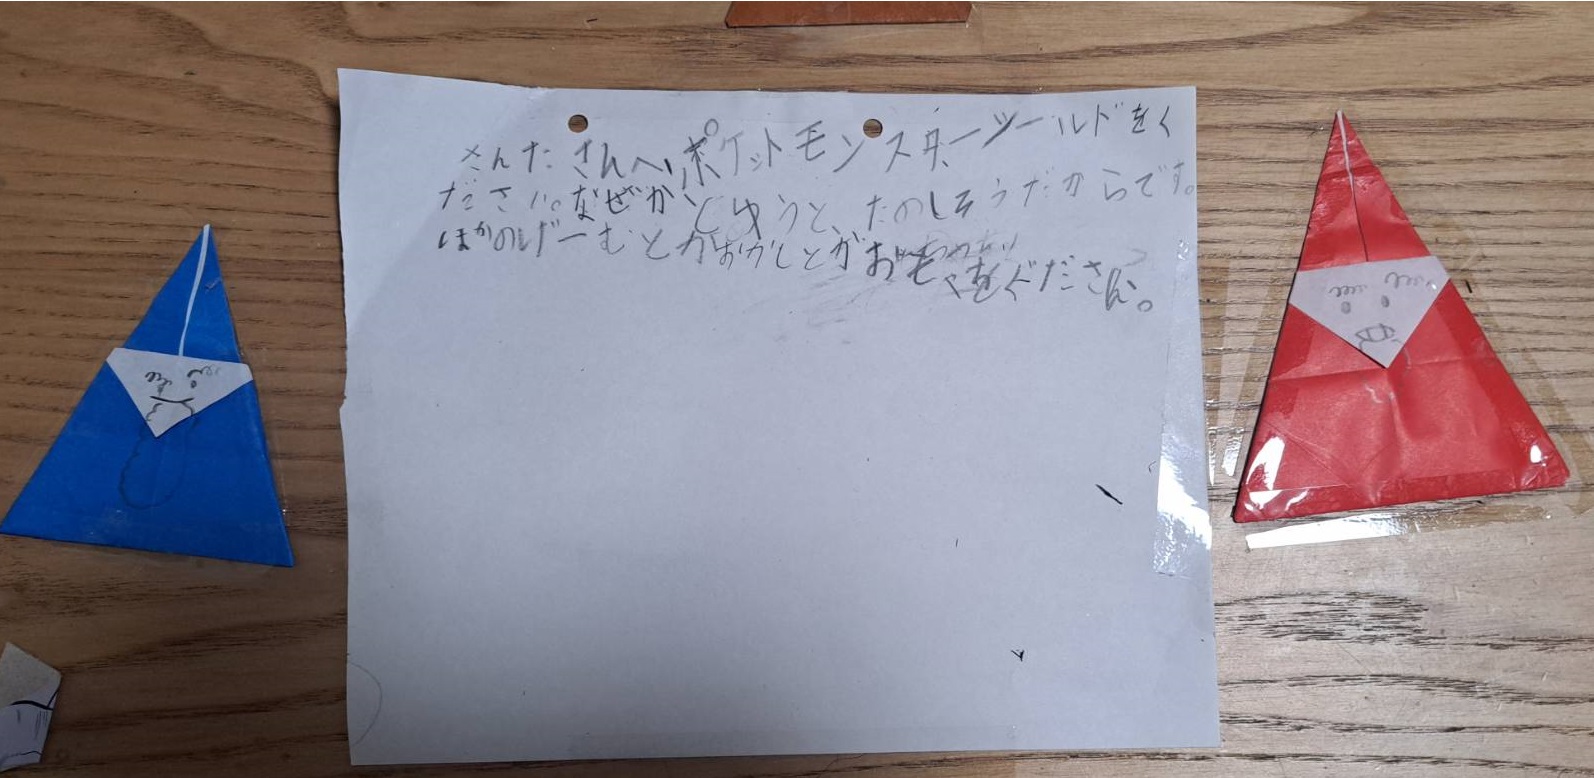 さんたさんへ、ポケットモンスターツールドをく
ださい。なぜかとゆうと、たのしそうだからです。
ほかのげーむとかおかしとかおもちゃをぐださい。